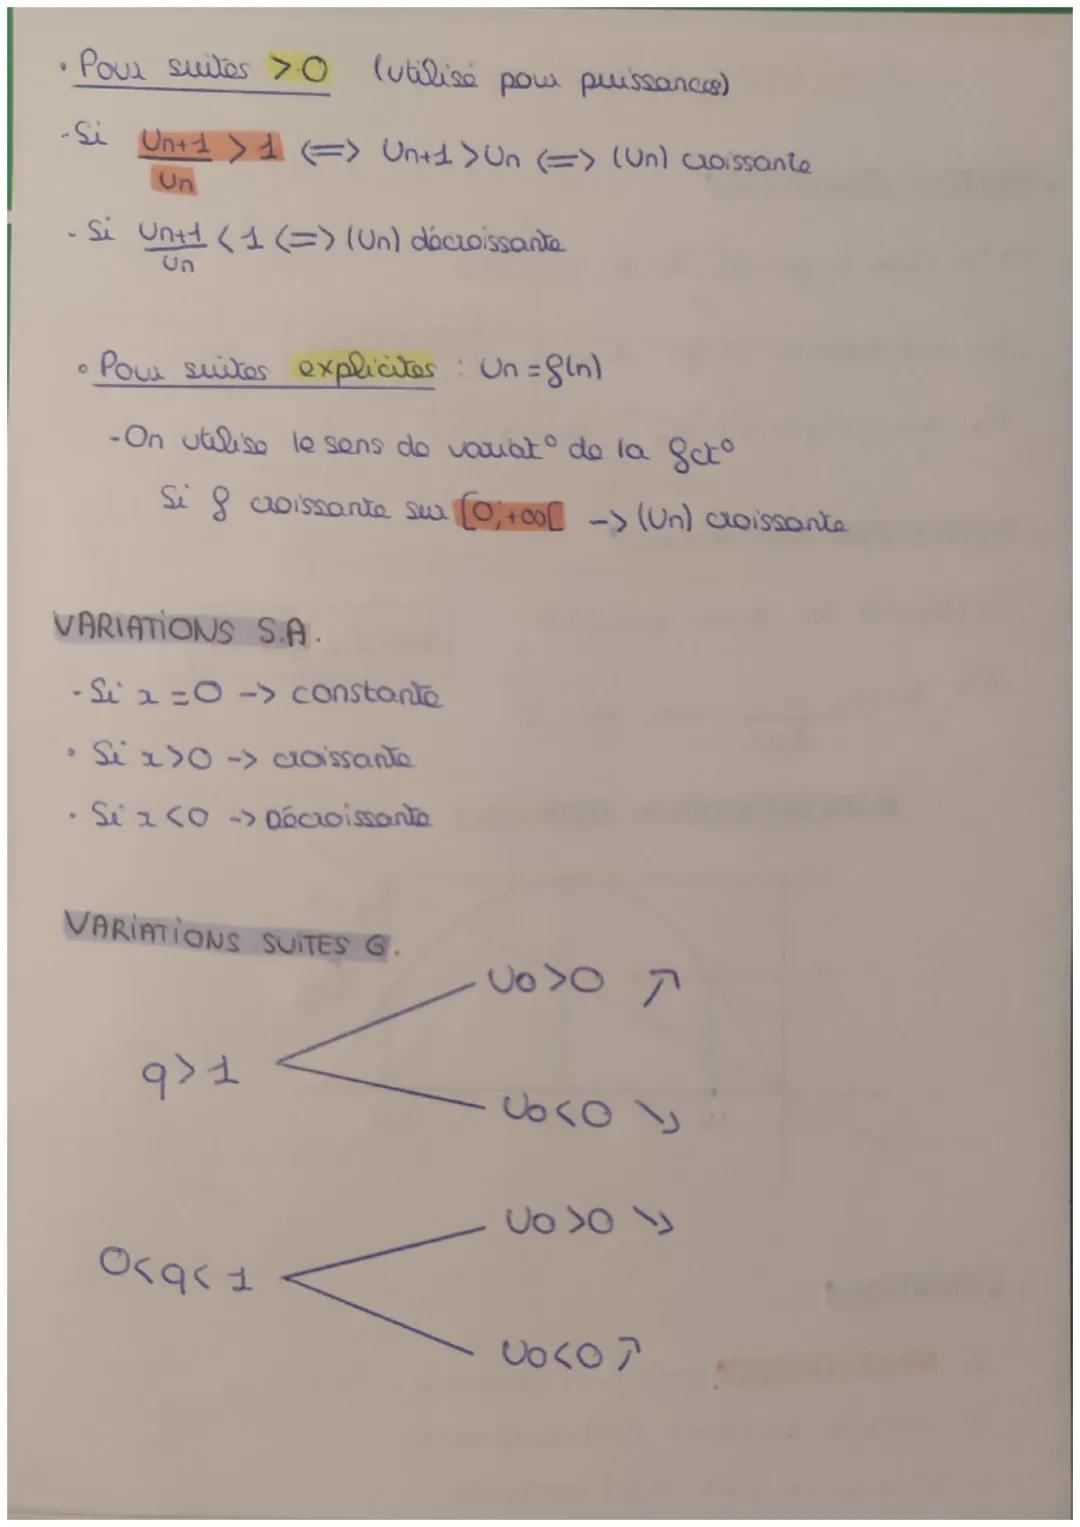 • Pour suites > 0 (utilisé pour puissances)
- Si Un+1/Un > 1 <=> Un+1 > Un <=> (Un) croissante
- Si Un+1/Un < 1 <=> (Un) décroissante
• Pour suites explicites : Un = f(n)
- On utilise le sens de variat° de la fct°
Si f croissante sur [0;+∞[ -> (Un) croissante
VARIATIONS S.A.
- Si r = 0 -> constante
• Si r > 0 -> croissante
• Si r < 0 -> Décroissante
VARIATIONS SUITES G.
U0 > 0 ↗
q > 1
U0 < 0 ↘
U0 > 0 ↘
0 < q < 1
U0 < 0 ↗